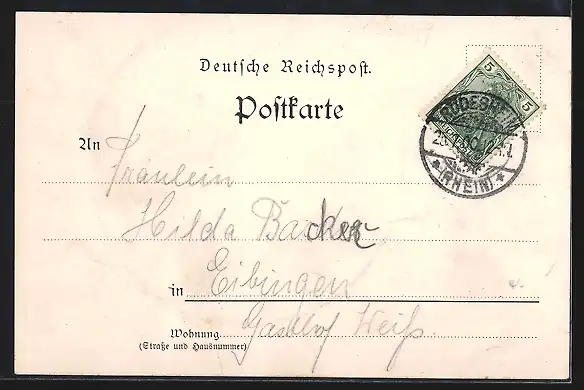 Deutsche Reichspost.
Postkarte
5 5
RÜDESHEIM
(RHEIN)
An Fräulein
Hilda
in Eibingen
Gasthof Weiß.
Wohnung
(Straße und Hausnummer)